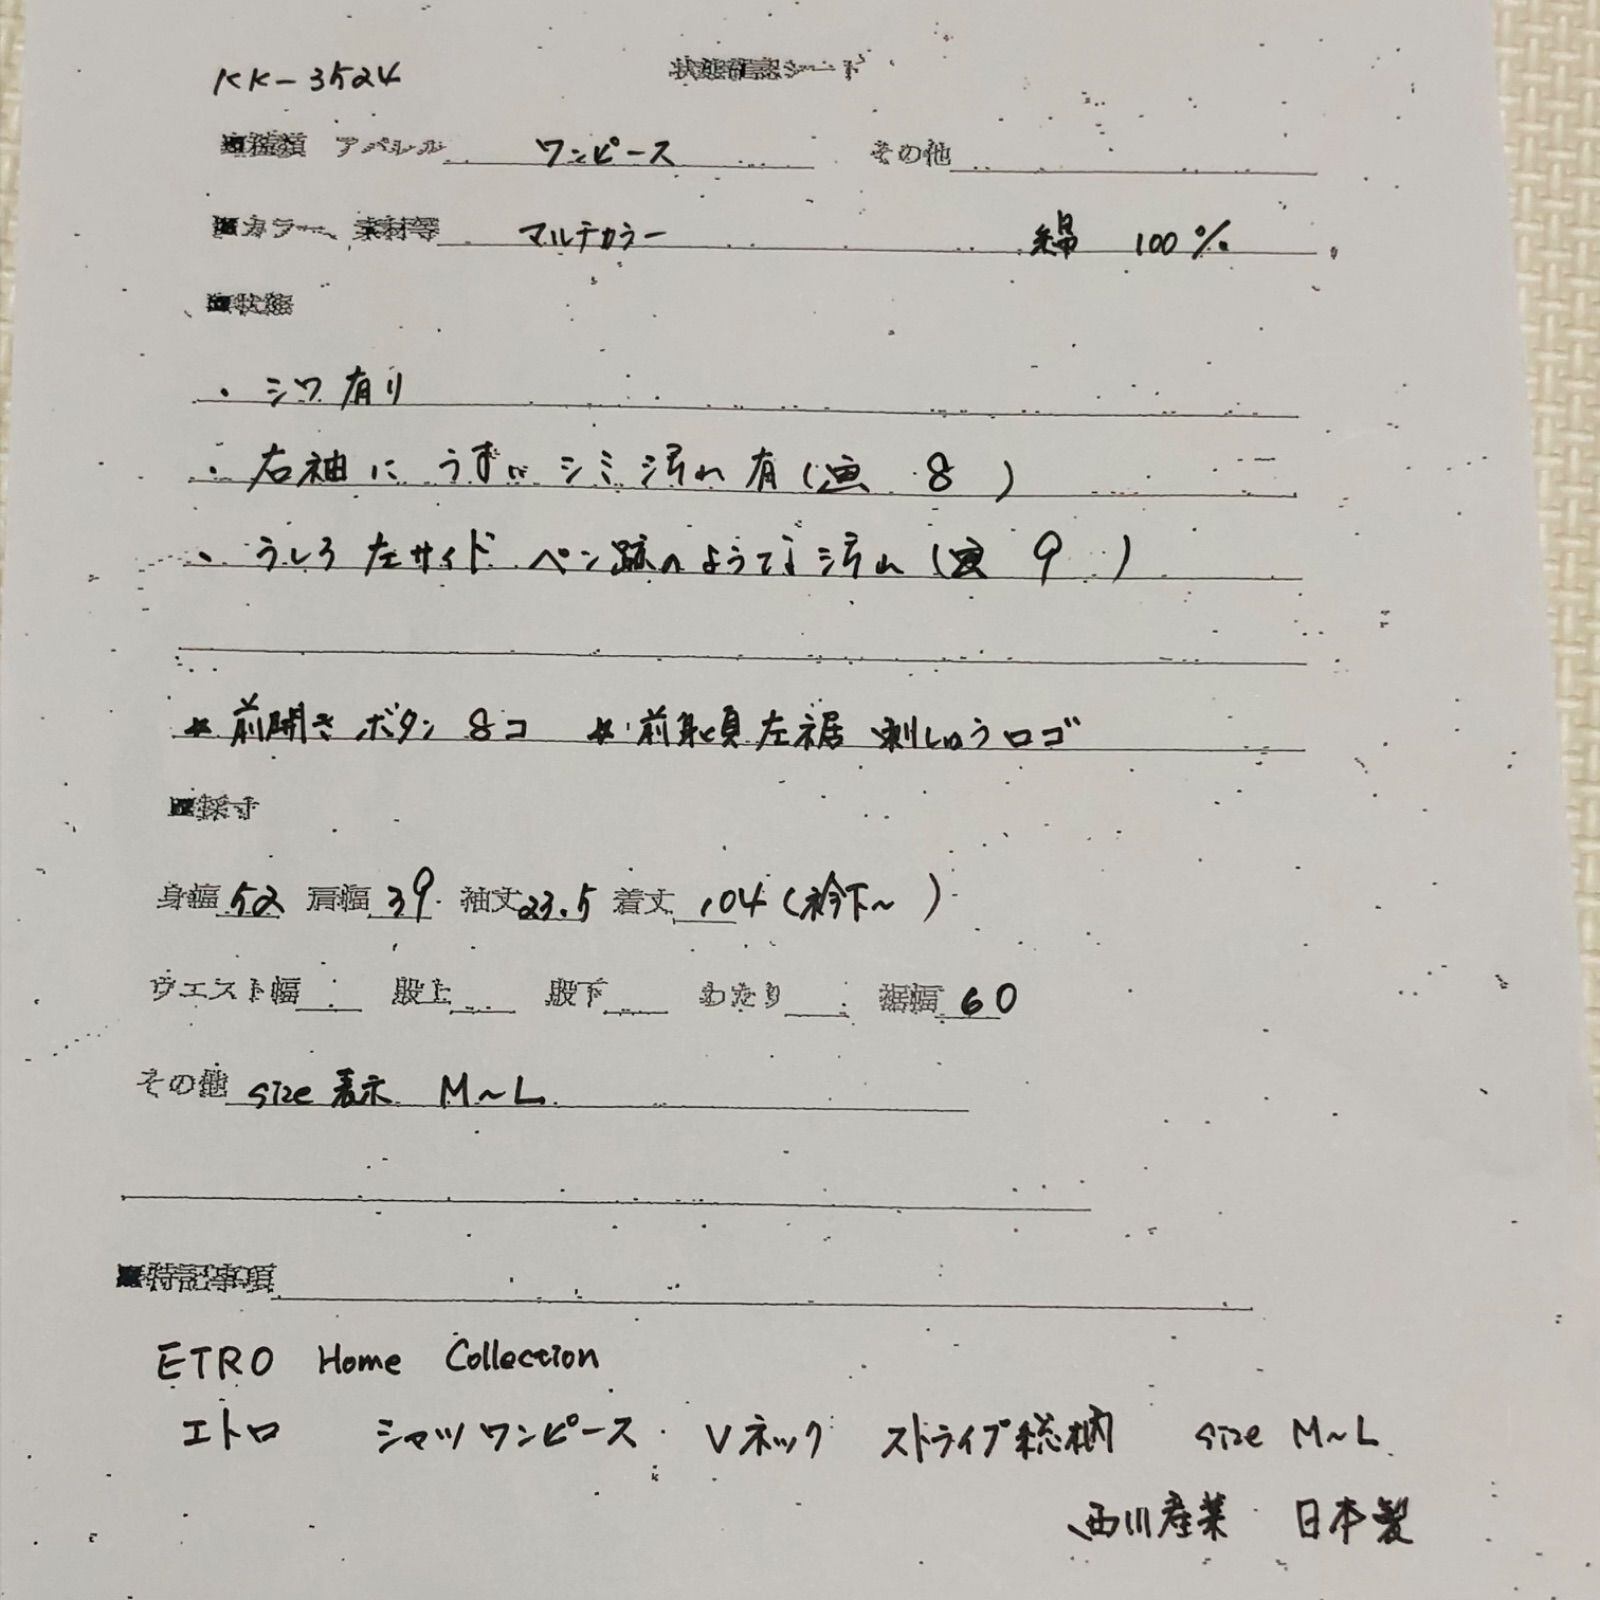 KK-3524 状態確認シート
■種類 アパレル ワンピース その他
■カラー、素材等 マルチカラー 綿 100%
■状態
・シワ有り
・右袖に うすい シミ汚れ有( 8 )
・うしろ左サイド ペン跡のような汚れ( 9 )
* 前開きボタン 8コ * 前身頃左裾 刺しゅうロゴ
■採寸
身幅 52 肩幅 39 袖丈 23.5 着丈 104 (衿下~ )
ウエスト幅 股上 股下 わたり 裾幅 60
その他 size 表示 M~L
■特記事項
ETRO Home Collection
エトロ シャツワンピース Vネック ストライプ総柄 size M~L
西川産業 日本製